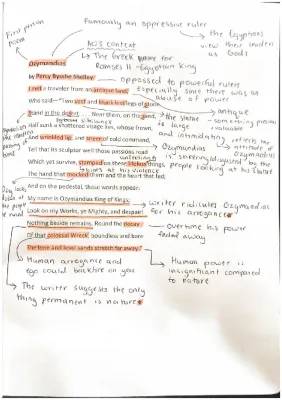 First person poem
Famously an oppressive ruler
the Egyptians view their rulers as Gods
AO3 context
↳ The Greek name for Ramses II - Egyptian King
Ozymandias
by Percy Bysshe Shelley
opposed to powerful rulers
Especially since there was an abuse of power
I met a traveller from an antique land
Who said: Two vast and trunkless legs of stone
Stand in the desert. Near them, on the sand,
Half sunk a shattered visage lies, whose frown,
And wrinkled lip, and sneer of cold command,
Tell that its sculptor well those passions read
Which yet survive, stamped on these lifeless things,
The hand that mocked them and the heart that fed;
And on the pedestal, these words appear:
My name is Ozymandias King of Kings;
Look on my Works, ye Mighty, and despair!
Nothing beside remains. Round the decay
Of that colossal Wreck, boundless and bare
The lone and level sands stretch far away.
antique - something valuable
the statue is large and intimidating
reflects the attitude of Ozymandias
Ozymandias is sneering
by the people looking at his statue
at his violence
writer ridicules Ozymandias for his arrogance
overtime his power faded away
Human power is insignificant compared to nature
Human arrogance and ego could backfire on you
The writer suggests the only thing permanent is nature